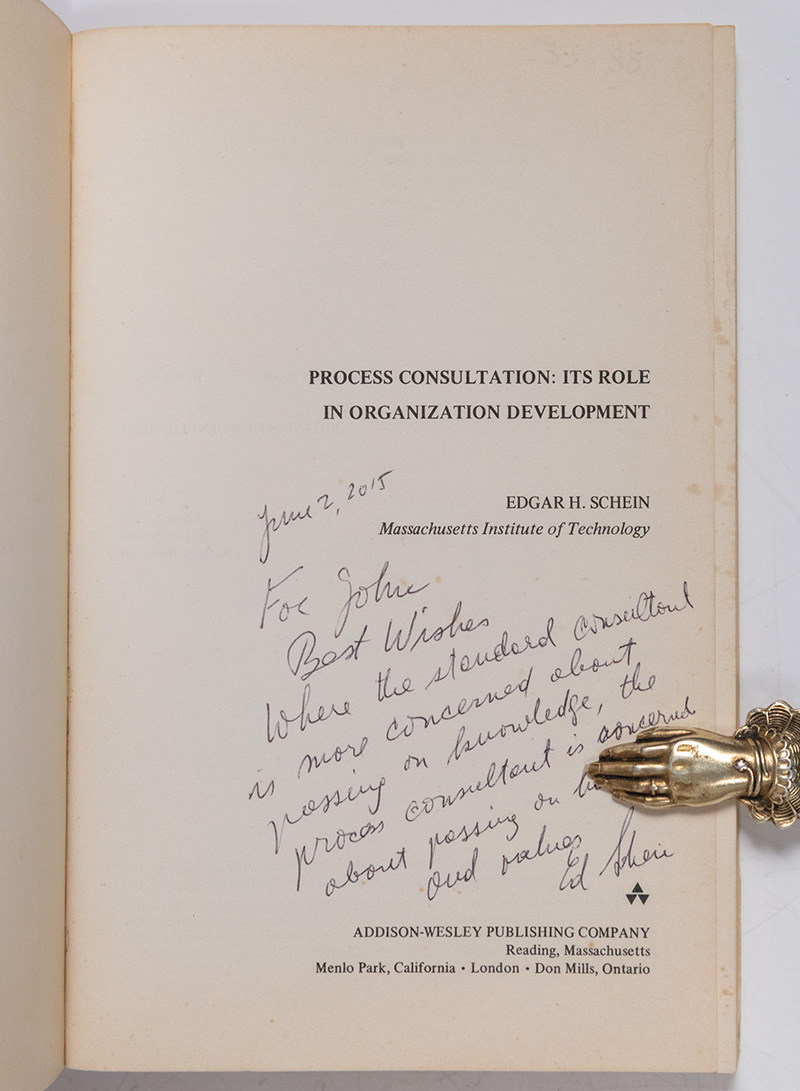 PROCESS CONSULTATION: ITS ROLE
IN ORGANIZATION DEVELOPMENT
EDGAR H. SCHEIN
Massachusetts Institute of Technology
June 2, 2015
For John
Best Wishes
Where the standard consultant
is more concerned about
passing on knowledge, the
process consultant is concerned
about passing on
and values
Ed Schein
ADDISON-WESLEY PUBLISHING COMPANY
Reading, Massachusetts
Menlo Park, California • London • Don Mills, Ontario